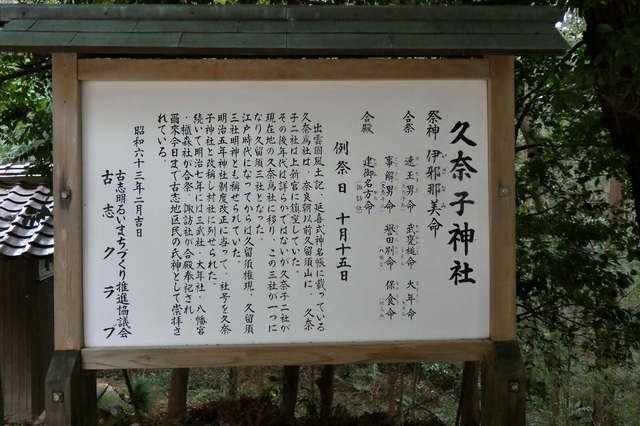 久奈子神社
祭神 伊邪那美命
合祭 速玉男命 武甕槌命 大年命
事解男命 誉田別命 保食命
合殿 建御名方命
例祭日 十月十五日
出雲国風土記、延喜式神名帳に載っている
久奈爲社は、奈良朝以前久留須山に、久奈
子二社は上新宮に鎮座していた。
その後年代は詳らかではないが久奈子二社が
現在地の久奈爲社に移り、この三社が一つに
なり久留須三社となった。
江戸時代になってからは久留須権現、久留須
三社明神とも称せられていた。
明治五年神社制度改正に当って、社号を久奈
子神社と改称し村社に列せられた。
続いて明治七年には三武社・大年社・八幡宮
・櫃森社が合祭、諏訪社が合殿奉祀され、
爾来今日まで古志地区民の氏神として崇拝さ
れている。
昭和六十三年二月吉日
古志明るいまちづくり推進協議会
古志クラブ